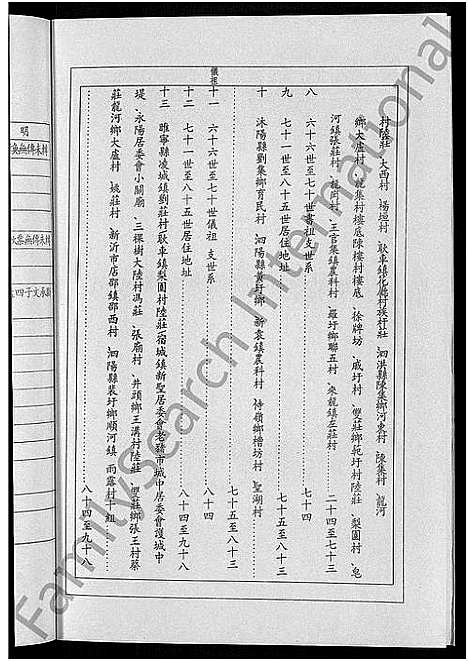 村陸莊、大西村、楊堌村、耿車鎮化廟村族村莊、泗洪縣陳集鄉河東村、陳集村、龍河
鄉大盧村、龍集村樓底陳樓村樓底、徐牌坊、戚圩村、雙莊鄉範圩村陸莊、梨園村、皂
河鎮張莊村、龍崗村、王官集鎮農科村、羅圩鄉聯五村、來龍鎮左莊村 二十四至七十三
八 六十六世至七十世書祖支世系 七十四
九 七十一世至八十五世居住地址 七十五至八十三
十 沭陽縣劉集鄉育民村、泗陽縣黃圩鄉、新袁鎮農科村、侍嶺鄉檜坊村、聖湖村 七十五至八十三
十一 六十六世至七十世儀祖支世系 八十四
十二 七十一世至八十五世居住地址 八十四至九十八
十三 睢寧縣凌城鎮劉莊村耿車鎮梨園村陸莊宿城鎮新聖居委會老豬市城中居委會護城中
堤、永陽居委會小關廟、三棵樹大陸村馮莊、張廟村、井頭鄉王溝村陸莊、雙莊鄉張王村蔡
莊龍河鄉大盧村、姚莊村、新沂市店邵鎮邵西村、泗陽縣裴圩鄉順河鎮、雨露村十組 八十四至九十八
儀祖
明
FamilySearch International